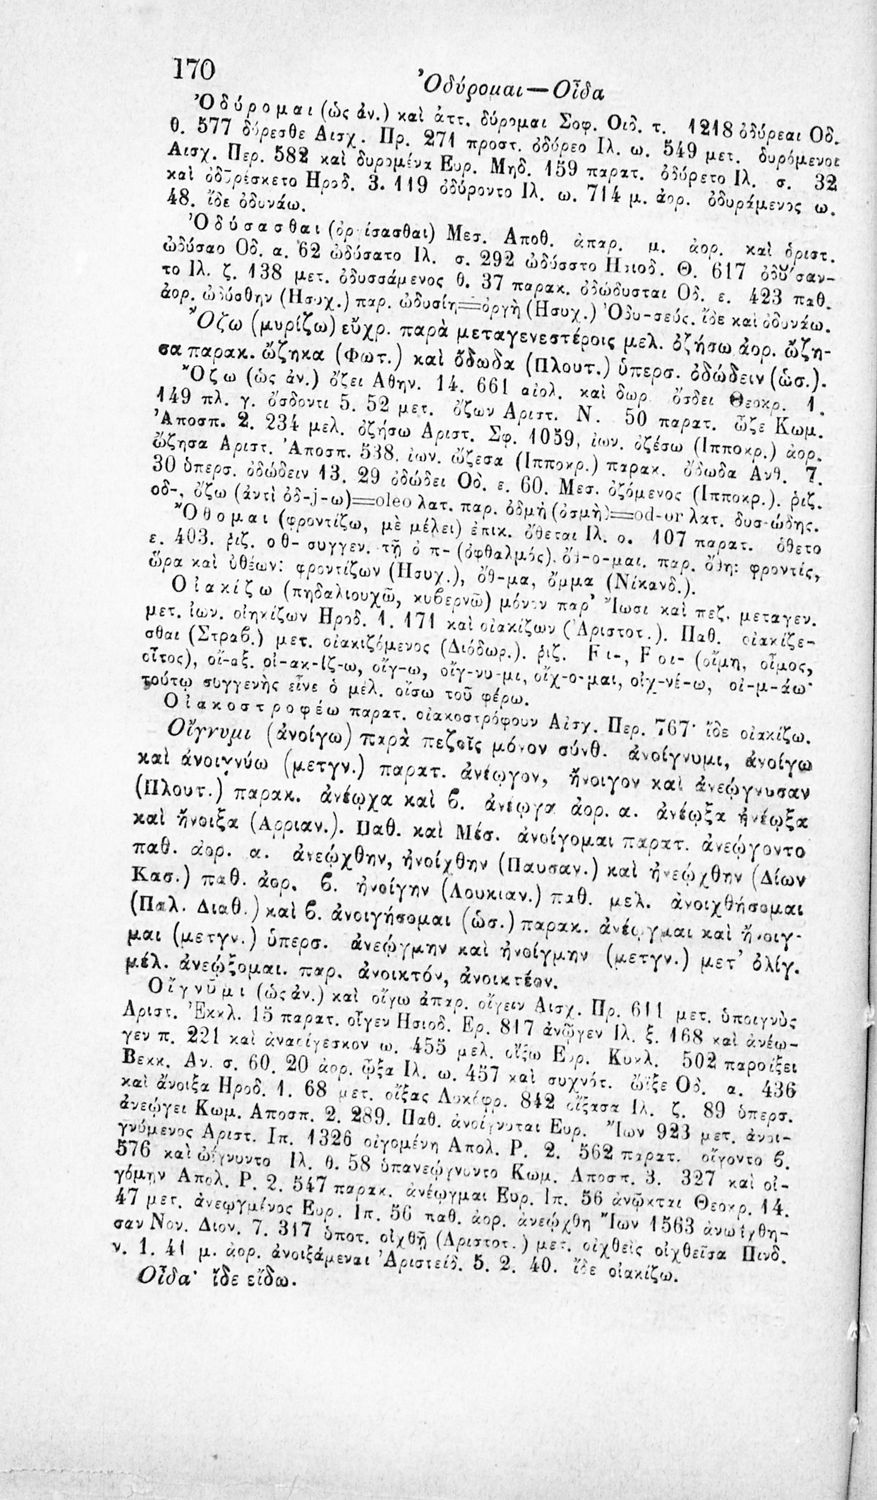 170
Ὀδύρομαι—Οἶδα
Ὀδύρομαι (ὡς ἀν.) καὶ ἀττ. δύρομαι Σοφ. Οιδ. τ. 1218 ὀδύρεαι Οδ.
θ. 577 δύρεσθε Αισχ. Πρ. 271 προστ. ὀδύρεο Ιλ. ω. 549 μετ. δυρόμενοι
Αισχ. Περ. 582 καὶ δυρομένα Ευρ. Μηδ. 159 παρατ. ὀδύρετο Ιλ. σ. 32
καὶ ὀδυρέσκετο Ηροδ. 3. 119 ὀδύροντο Ιλ. ω. 714 μ. ἀορ. ὀδυράμενος ω.
48. ἴδε ὀδυνάω.
Ὀδύσασθαι (ὀργίσασθαι) Μεσ. Αποθ. ἀπαρ. μ. ἀορ. καὶ ὁριστ.
ὠδύσαο Οδ. α. 62 ὠδύσατο Ιλ. σ. 292 ὠδύσστο Ησιοδ. Θ. 617 ὀδύσαν-
το Ιλ. ζ. 138 μετ. ὀδυσσάμενος θ. 37 παρακ. ὀδώδυσται Οδ. ε. 423 παθ.
ἀορ. ὠδύσθην (Ησυχ.) παρ. ὠδυσίη=ὀργὴ (Ησυχ.) Ὀδυ-σεύς. ἴδε καὶ ὀδυνάω.
Ὄζω (μυρίζω) εὔχρ. παρὰ μεταγενεστέροις μελ. ὀζήσω ἀορ. ὤζη-
σα παρακ. ὤζηκα (Φωτ.) καὶ ὄδωδα (Πλουτ.) ὑπερσ. ὀδώδειν (ὡσ.).
Ὄζω (ὡς ἀν.) ὄζει Αθην. 14. 661 αἰολ. καὶ δωρ. ὄσδει Θεοκρ. 1.
149 πλ. γ. ὄσδοντι 5. 52 μετ. ὄζων Αριστ. Ν. 50 παρατ. ὦζε Κωμ.
Ἀποσπ. 2. 234 μελ. ὀζήσω Αριστ. Σφ. 1059, ἰων. ὀζέσω (Ιπποκρ.) ἀορ.
ὤζησα Αριστ. Ἀποσπ. 538. ἰων. ὤζεσα (Ιπποκρ.) παρακ. ὄδωδα Ανθ. 7.
30 ὑπερσ. ὀδώδειν 13. 29 ὀδώδει Οδ. ε. 60. Μεσ. ὀζόμενος (Ιπποκρ.). ῥιζ.
οδ-, ὄζω (ἀντὶ ὀδ-j-ω)=oleo λατ. παρ. ὀδμὴ (ὀσμὴ)=od-or λατ. δυσ-ώδης.
Ὄθομαι (φροντίζω, μὲ μέλει) ἐπικ. ὄθεται Ιλ. ο. 107 παρατ. ὄθετο
ε. 403. ῥιζ. οθ- συγγεν. τῇ ὀπ- (ὀφθαλμός). ὄθ-ο-μαι. παρ. ὄθη: φροντίς,
ὥρα καὶ ὀθέων: φροντίζων (Ησυχ.), ὄθ-μα, ὄμμα (Νίκανδ.).
Οἰακίζω (πηδαλιουχῶ, κυβερνῶ) μόνον παρ' Ἴωσι καὶ πεζ. μεταγεν.
μετ. ἰων. οἰηκίζων Ηροδ. 1. 171 καὶ οἰακίζων (Ἀριστοτ.). Παθ. οἰακίζε-
σθαι (Στραβ.) μετ. οἰακιζόμενος (Διόδωρ.). ῥιζ. Ϝι-, Ϝοι- (οἴμη, οἶμος,
οἶτος), οἴ-αξ. οἰ-ακ-ίζ-ω, οἴγ-ω, οἴγ-νυ-μι, οἴχ-ο-μαι, οἰχ-νέ-ω, οἰ-μ-άω·
τούτῳ συγγενὴς εἶνε ὁ μέλ. οἴσω τοῦ φέρω.
Οἰακοστροφέω παρατ. οἰακοστρόφουν Αἰσχ. Περ. 767· ἴδε οἰακίζω.
Οἴγνυμι (ἀνοίγω) παρὰ πεζοῖς μόνον σύνθ. ἀνοίγνυμι, ἀνοίγω
καὶ ἀνοιγνύω (μετγν.) παρατ. ἀνέῳγον, ἤνοιγον καὶ ἀνεῴγνυσαν
(Πλουτ.) παρακ. ἀνέῳχα καὶ β. ἀνέῳγα ἀορ. α. ἀνέῳξα ἠνέῳξα
καὶ ἤνοιξα (Αρριαν.). Παθ. καὶ Μέσ. ἀνοίγομαι παρατ. ἀνεῴγοντο
παθ. ἀορ. α. ἀνεῴχθην, ἠνοίχθην (Παυσαν.) καὶ ἠνεῴχθην (Δίων
Κασ.) παθ. ἀορ. β. ἠνοίγην (Λουκιαν.) παθ. μελ. ἀνοιχθήσομαι
(Παλ. Διαθ.) καὶ β. ἀνοιγήσομαι (ὡσ.) παρακ. ἀνέῳγμαι καὶ ἤνοιγ-
μαι (μετγν.) ὑπερσ. ἀνεῴγμην καὶ ἠνοίγμην (μετγν.) μετ' ὀλίγ.
μέλ. ἀνεῴξομαι. παρ. ἀνοικτόν, ἀνοικτέον.
Οἴγνῡμι (ὡς ἀν.) καὶ οἴγω ἀπαρ. οἴγειν Αισχ. Πρ. 611 μετ. ὑποιγνὺς
Αριστ. Ἐκκλ. 15 παρατ. οἶγεν Ησιοδ. Ερ. 817 ἀνῷγεν Ιλ. ξ. 168 καὶ ἀνέῳ-
γεν π. 221 καὶ ἀναοίγεσκον ω. 455 μελ. οἴξω Ευρ. Κυκλ. 502 παροίξει
Βεκκ. Αν. σ. 60. 20 ἀορ. ᾦξα Ιλ. ω. 457 καὶ συχνότ. ὤϊξε Οδ. α. 436
καὶ ἄνοιξα Ηροδ. 1. 68 μετ. οἴξας Λυκόφρ. 842 οἴξασα Ιλ. ζ. 89 ὑπερσ.
ἀνεῴγει Κωμ. Αποσπ. 2. 289. Παθ. ἀνοίγνυται Ευρ. Ἴων 923 μετ. ἀνοι-
γνύμενος Αριστ. Ιπ. 1326 οἰγομένη Απολ. Ρ. 2. 562 παρατ. οἴγοντο β.
576 καὶ ὠΐγνυντο Ιλ. θ. 58 ὑπανεῴγνυντο Κωμ. Αποσπ. 3. 327 καὶ οἰ-
γόμην Απολ. Ρ. 2. 547 παρακ. ἀνέῳγμαι Ευρ. Ιπ. 56 ἀνῷκται Θεοκρ. 14.
47 μετ. ἀνεῳγμένος Ευρ. Ιπ. 56 παθ. ἀορ. ἀνεῴχθη Ἴων 1563 ἀνωΐχθη-
σαν Νον. Διον. 7. 317 ὑποτ. οἰχθῇ (Αριστοτ.) μετ. οἰχθεὶς οἰχθεῖσα Πινδ.
ν. 1. 41 μ. ἀορ. ἀνοιξάμεναι Ἀριστείδ. 5. 2. 40. ἴδε οἰακίζω.
Οἶδα· ἴδε εἴδω.